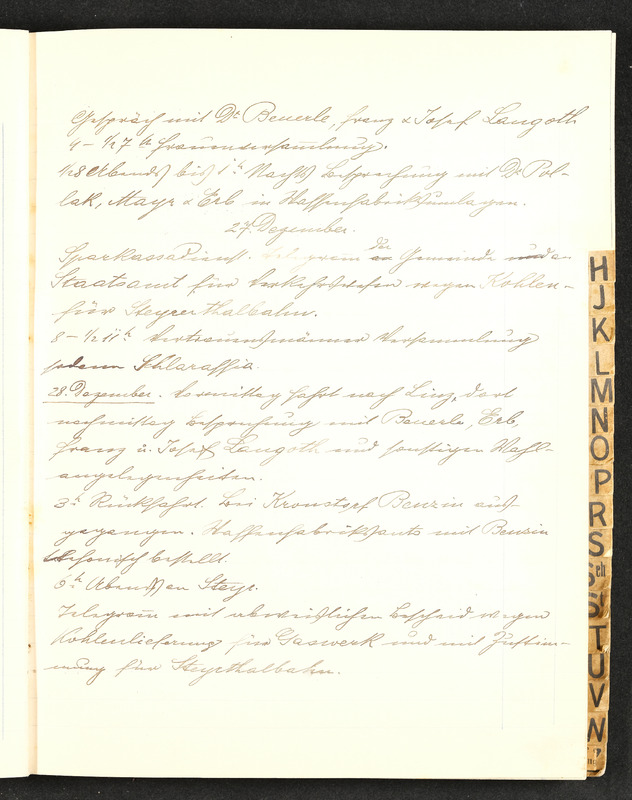 Gespräch mit Dr Beuerle, Franz & Josef Langoth
4 – ½ 7 h Frauenversammlung.
½ 8 Abends bis 1 h Nachts Besprechung mit Dr Pol-
lak, Mayr & Erb in Waffenfabriksumlagen.
27. Dezember.
Sparkassadienst. Telegram der Gemeinde an
Staatsamt für Verkehrswesen wegen Kohlen-
für Steyrerthalbahn.
8 – ½ 11 h Vertrauensmänner Versammlung
sodann Schlaraffia.
28. Dezember. Vormittag Fahrt nach Linz, dort
nachmittag Besprechung mit Beuerle, Erb,
Franz u. Josef Langoth und sonstigen Wahl-
angelegenheiten.
3 h Rückfahrt. Bei Kronstorf Benzin aus-
gegangen. Waffenfabriksauto mit Benzin
telefonisch bestellt.
h Abends an Steyr.
Telegram mit abweislichen Bescheid wegen
Kohlenlieferung für Gaswerk und mit Zustim-
mung für Steyrthalbahn.
H
J
K
L
M
N
O
P
R
S
Sch
St
T
U
V
W